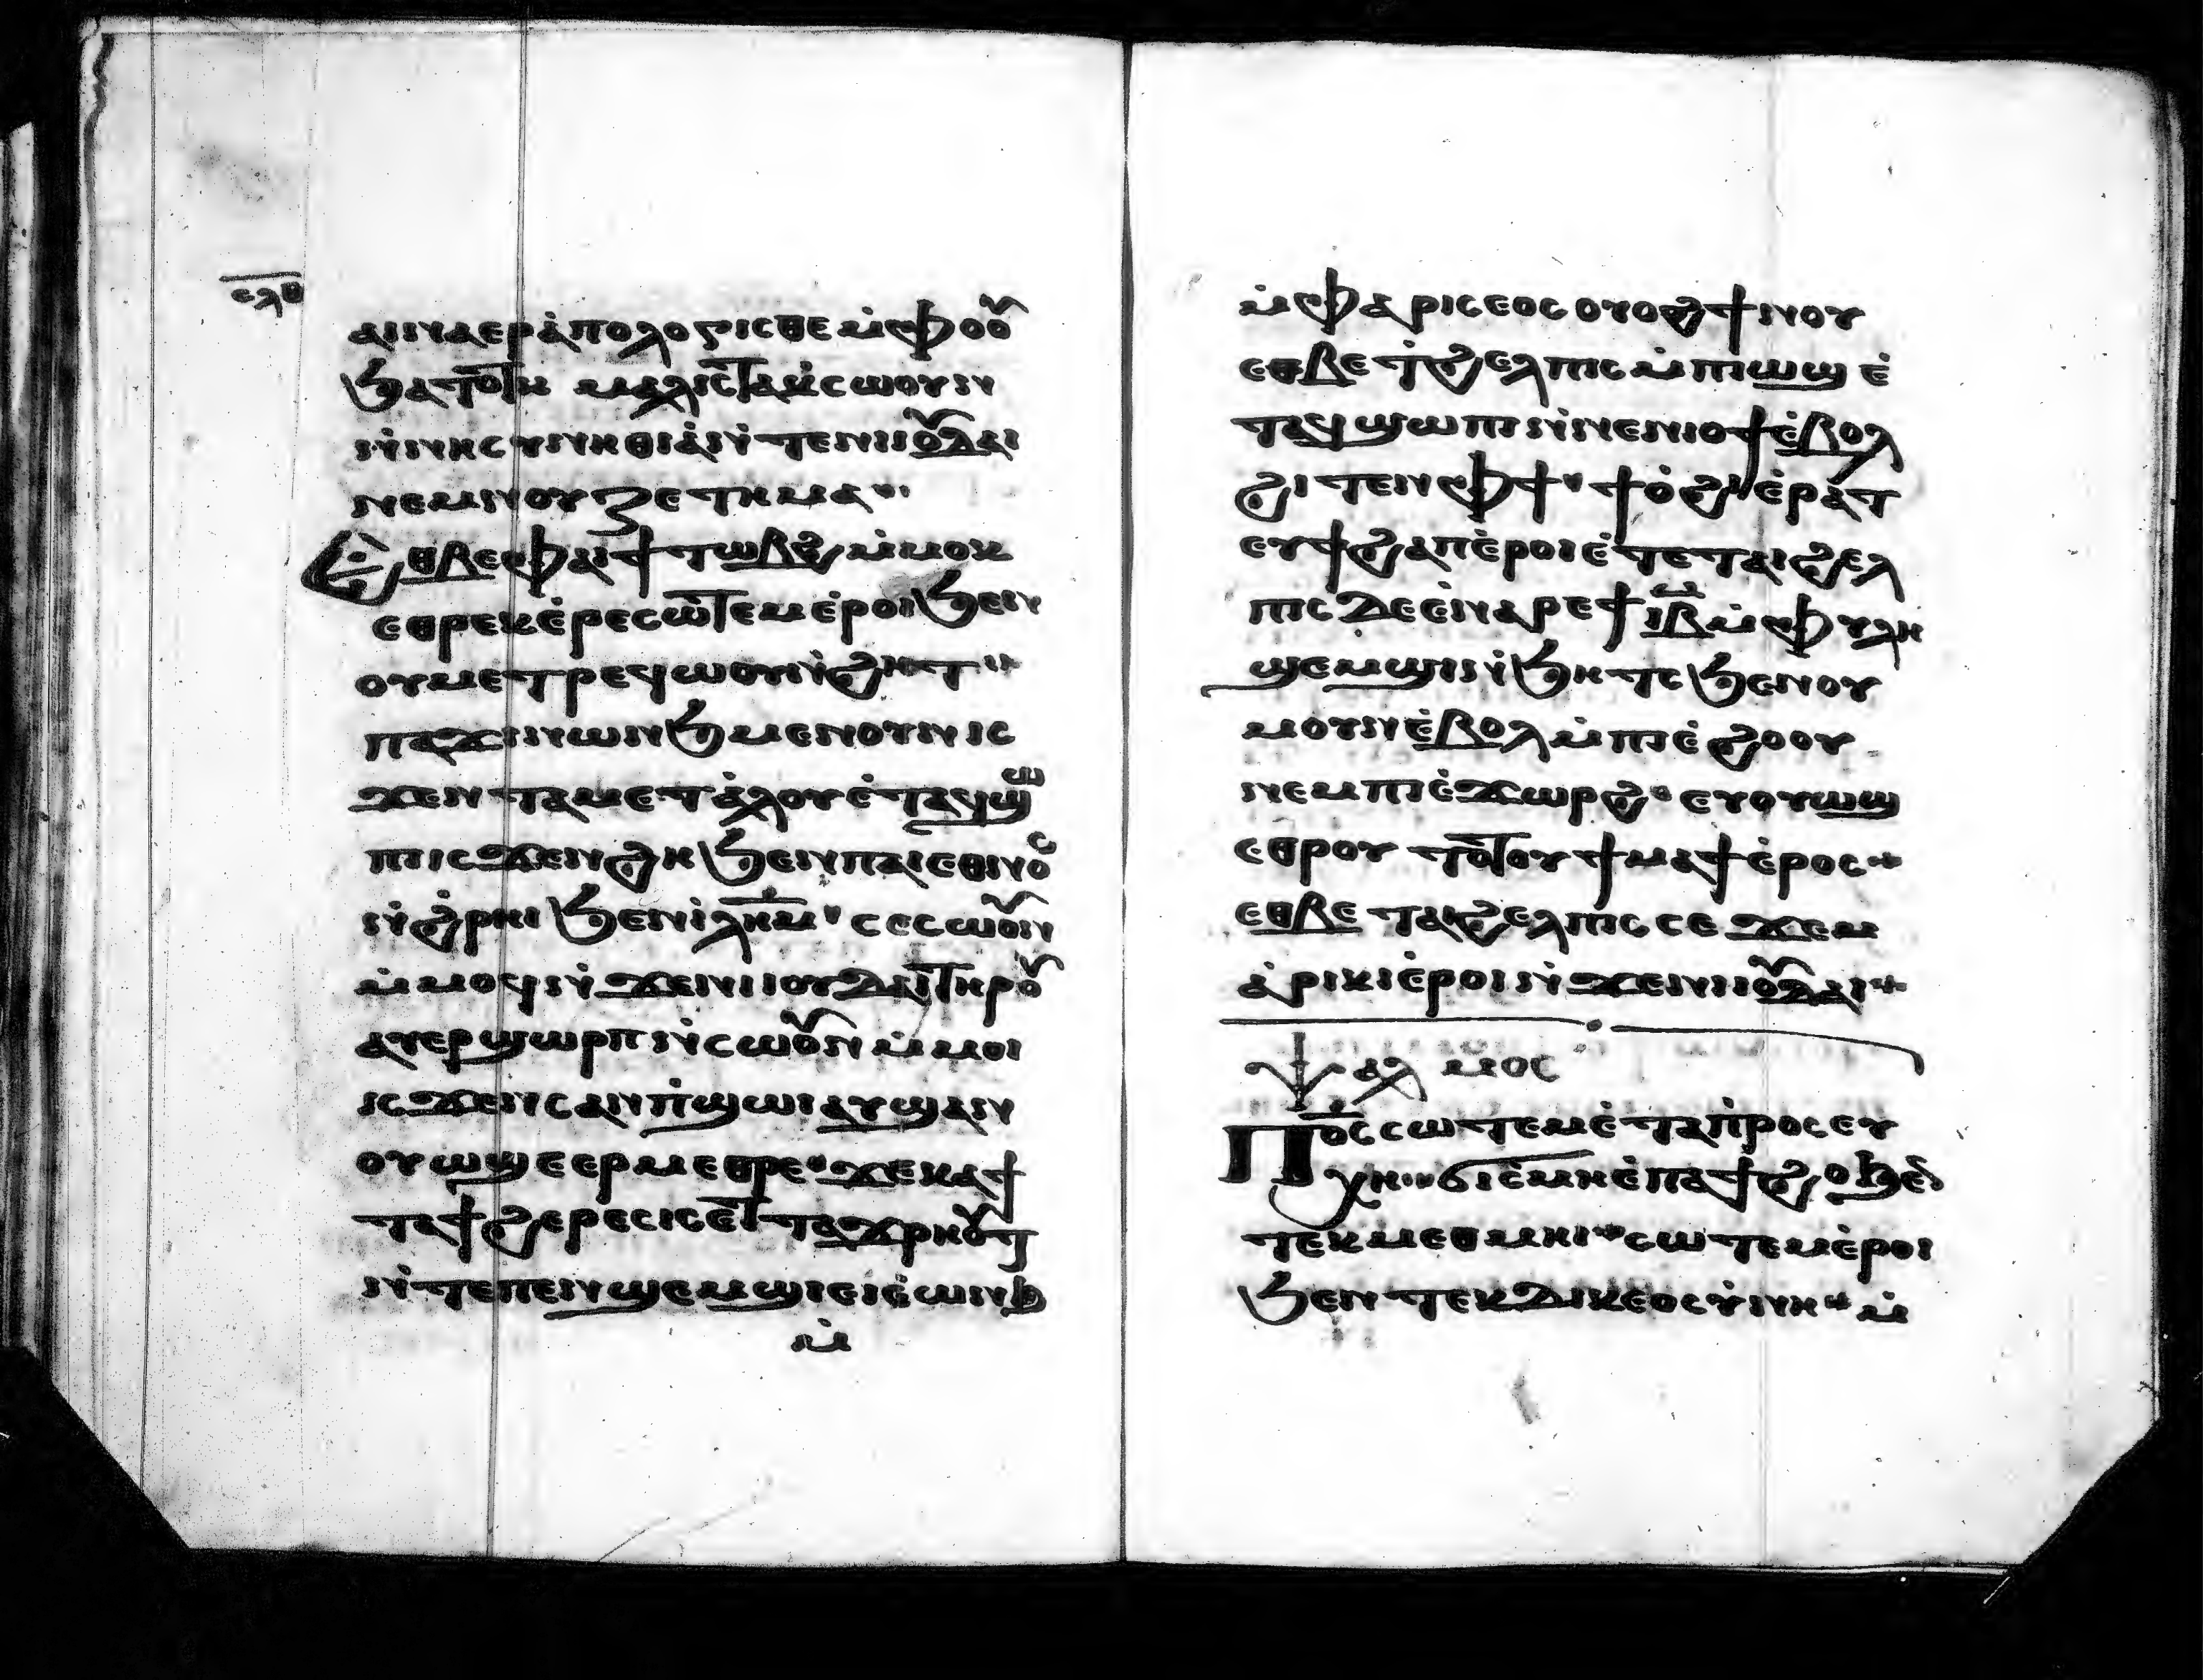 ⲥⲗⲑ
ⲁⲓⲛⲁⲉⲣⲁ̀ⲡⲟⲗⲟⲅⲓⲥⲑⲉ ⲙ̀ⲫⲟⲟⲩ
ϧⲁⲧⲟⲧⲕ ⲙⲁⲗⲓⲥⲧⲁⲕ̀ⲥⲱⲟⲩⲛ
ⲛ̀ⲛⲏⲥⲩⲛⲏⲑⲓⲁ̀ ⲛ̀ⲧⲉⲛⲓⲓⲟⲩⲇⲁⲓ
ⲛⲉⲙⲛⲟⲩⲍⲉⲧⲏⲙⲁ
Ⲉⲑⲃⲉⲫⲁⲓϯⲧⲱⲃϩ ⲙ̀ⲙⲟⲕ
ⲉⲑⲣⲉⲕⲉ̀ⲣⲉⲥⲱⲧⲉⲙ ⲉ̀ⲣⲟⲓ ϧⲉⲛ
ⲟⲩⲙⲉⲧⲣⲉϥⲱⲟⲩⲛ̀ϩⲏⲧ
ⲡⲁϫⲓⲛⲱⲛϧ ⲙⲉⲛⲟⲩⲛ ⲓⲥ
ϫⲉⲛ ⲧⲁⲙⲉⲧⲁ̀ⲗⲟⲩ ⲉ̀ⲧⲁϥϣⲱ
ⲡⲓⲥϫⲉⲛϩⲏ ϧⲉⲛⲡⲁⲓⲉⲑⲛⲟⲥ
ⲛ̀ϩ̀ⲣⲏⲓ ϧⲉⲛⲓ̀ⲗⲏⲙ ⲥⲉⲥⲱⲟⲩⲛ
ⲙ̀ⲙⲟϥ ⲛ̀ϫⲉⲛⲓⲓⲟⲩⲇⲁⲓ ⲧⲏⲣⲟⲩ
ⲁⲩⲉⲣϣⲱⲣⲡ ⲛ̀ⲥⲱⲟⲩⲛ ⲙ̀ⲙⲟⲓ
ⲓⲥϫⲉⲛ ⲥⲁⲛⲡ̀ϣⲱⲓ ⲁⲩϣⲁⲛ
ⲟⲩⲱϣ ⲉⲉⲣⲙⲉⲑⲣⲉ ϫⲉⲕⲁⲧⲁ
ⲧⲁϯϩⲉⲣⲉⲥⲓⲥ ⲉⲧⲧⲁϫⲣⲏⲟⲩⲧ
ⲛ̀ⲧⲉⲡⲉⲛϣⲉⲙϣⲓ ⲉⲓⲉ̀ⲱⲛϧ
ⲙ̀
ⲙ̀ⲫⲁⲣⲓⲥⲉⲟⲥ ⲟⲩⲟϩ ϯⲛⲟⲩ
ⲉⲑⲃⲉ ϯϩⲉⲗⲡⲓⲥ ⲙ̀ⲡⲓⲱϣ ⲉ̀
ⲧⲁϥϣⲱⲡⲓ ⲛ̀ⲛⲉⲛⲓⲟϯ ⲉ̀ⲃⲟⲗ
ϩⲓⲧⲉⲛ ⲫϯ ϯⲟ̀ϩⲓ ⲉ̀ⲣⲁⲧ
ⲉⲩϯϩⲁⲡ ⲉ̀ⲣⲟⲓ ⲉ̀ⲧⲉⲧⲁⲓϩⲉⲗ
ⲡⲓⲥ ⲇⲉ ⲉ̀ⲛⲁⲣⲉϯⲓⲃ ⲙ̀ⲫⲩⲗⲏ
ϣⲉⲙϣⲓ ⲛ̀ϧⲏⲧⲥ ϧⲉⲛⲟⲩ
ⲙⲟⲩⲛ ⲉ̀ⲃⲟⲗ ⲙ̀ⲡⲓⲉ̀ϩⲟⲟⲩ
ⲛⲉⲙⲡⲓⲉ̀ϫⲱⲣϩ ⲉⲩⲟⲩⲱϣ
ⲉⲑⲣⲟⲩⲧⲟⲧⲟⲩ ϯⲙⲁϯ ⲉ̀ⲣⲟⲥ
ⲉⲑⲃⲉ ⲧⲁⲓϩⲉⲗⲡⲓⲥ ⲥⲉϫⲉⲙ
ⲁ̀ⲣⲓⲕⲓ ⲉ̀ⲣⲟⲓ ⲛ̀ϫⲉⲛⲓⲓⲟⲩⲇⲁⲓ
ⲯⲁⲗⲙⲟⲥ
Ⲡⲟ̅ⲥ̅ ⲥⲱⲧⲉⲙ ⲉ̀ⲧⲁⲡ̀ⲣⲟⲥⲉⲩ
ⲭⲏ ϭⲓⲥ̀ⲙⲏ ⲉ̀ⲡⲁϯϩⲟ ϧⲉⲛ
ⲧⲉⲕⲙⲉⲑⲙⲏⲓ ⲥⲱⲧⲉⲙ ⲉ̀ⲣⲟⲓ
ϧⲉⲛ ⲧⲉⲕⲇⲓⲕⲉⲟⲥⲩ̀ⲛⲏ ⲙ̀